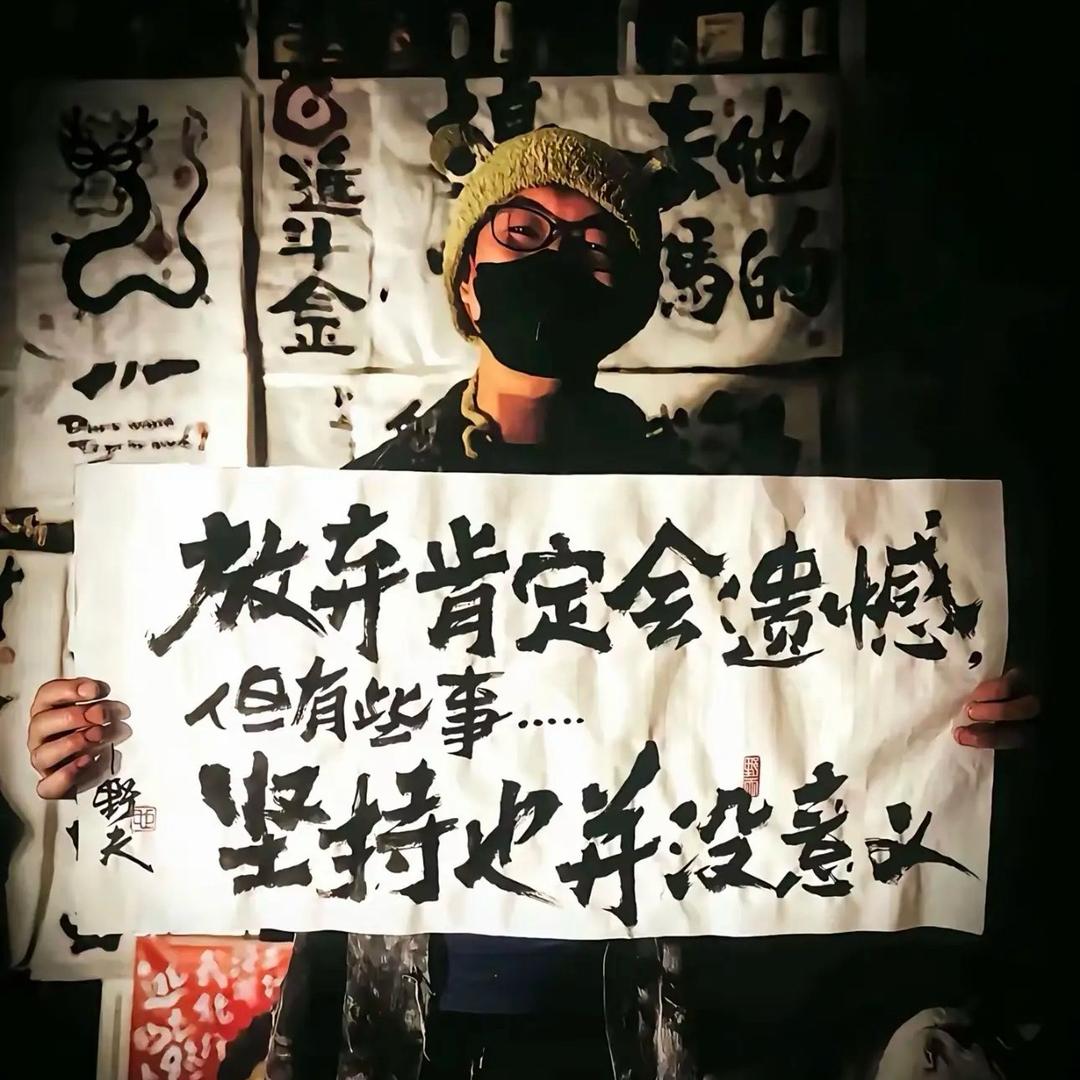 進斗金
去他
馬的
放弃肯定会遗憾,
但有些事……
坚持也并没意义
野夫